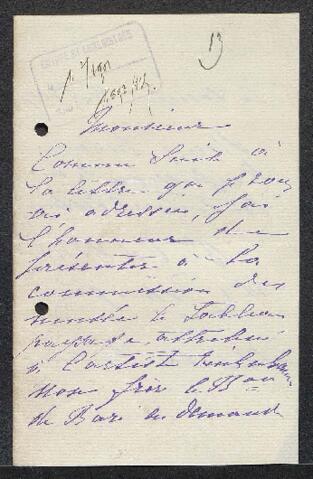 13
Monsieur
Comme suite à
la lettre que je vous
ai adressée, j'ai
l'honneur de
présenter à la
commission des
musées le tableau
paysage, attribué
à l'artist
mon frère le Bon
de Baré en demande